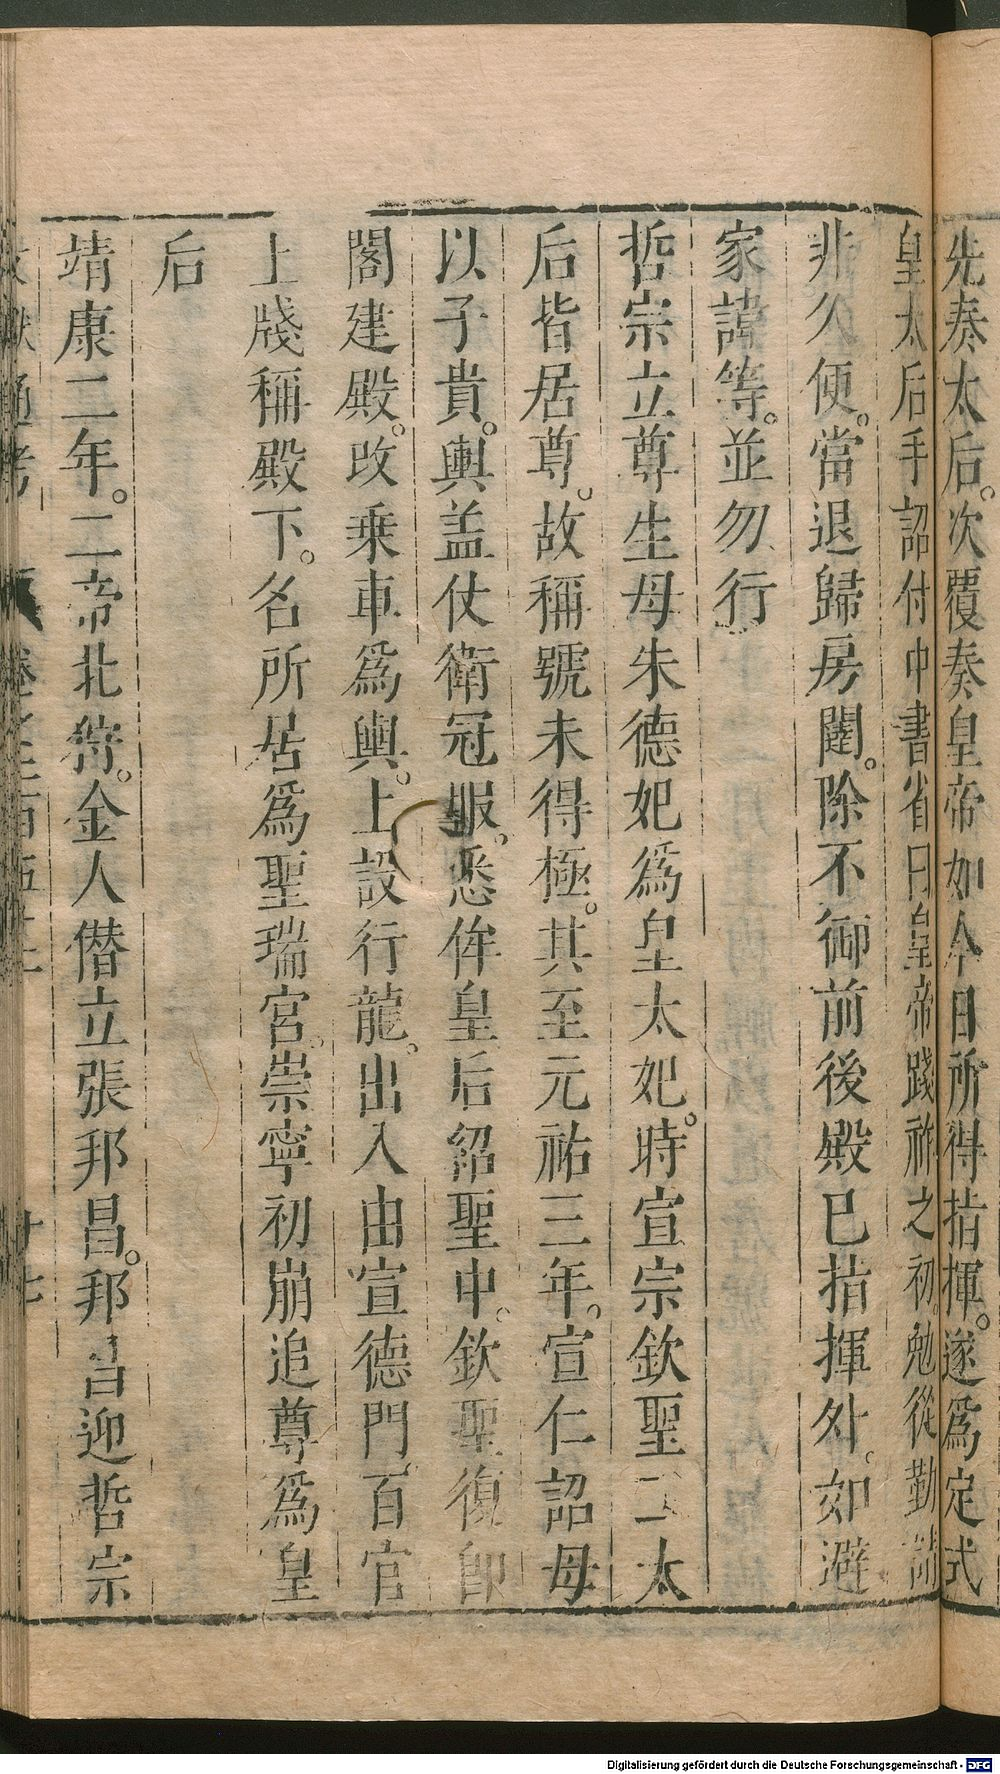 先奏太后。次覆奏皇帝如今日所得指揮。遂爲定式
皇太后手詔付中書省曰皇帝踐祚之初。勉從勤請
非久便。當退歸房闥。除不御前後殿已指揮外。如避
家諱等。並勿行
哲宗立尊生母朱德妃爲皇太妃。時宣宗欽聖二太
后皆居尊。故稱號未得極。其至元祐三年。宣仁詔母
以子貴。輿盖仗衛冠服。悉侔皇后紹聖中。欽聖復即
閣建殿。改乗車爲輿。上設行龍。出入由宣德門百官
上牋稱殿下。名所居爲聖瑞宮。崇寧初崩追尊爲皇
后
靖康二年。二帝北狩。金人僣立張邦昌。邦昌迎哲宗
通考 卷二百五十二 廿七
Digitalisierung gefördert durch die Deutsche Forschungsgemeinschaft - DFG